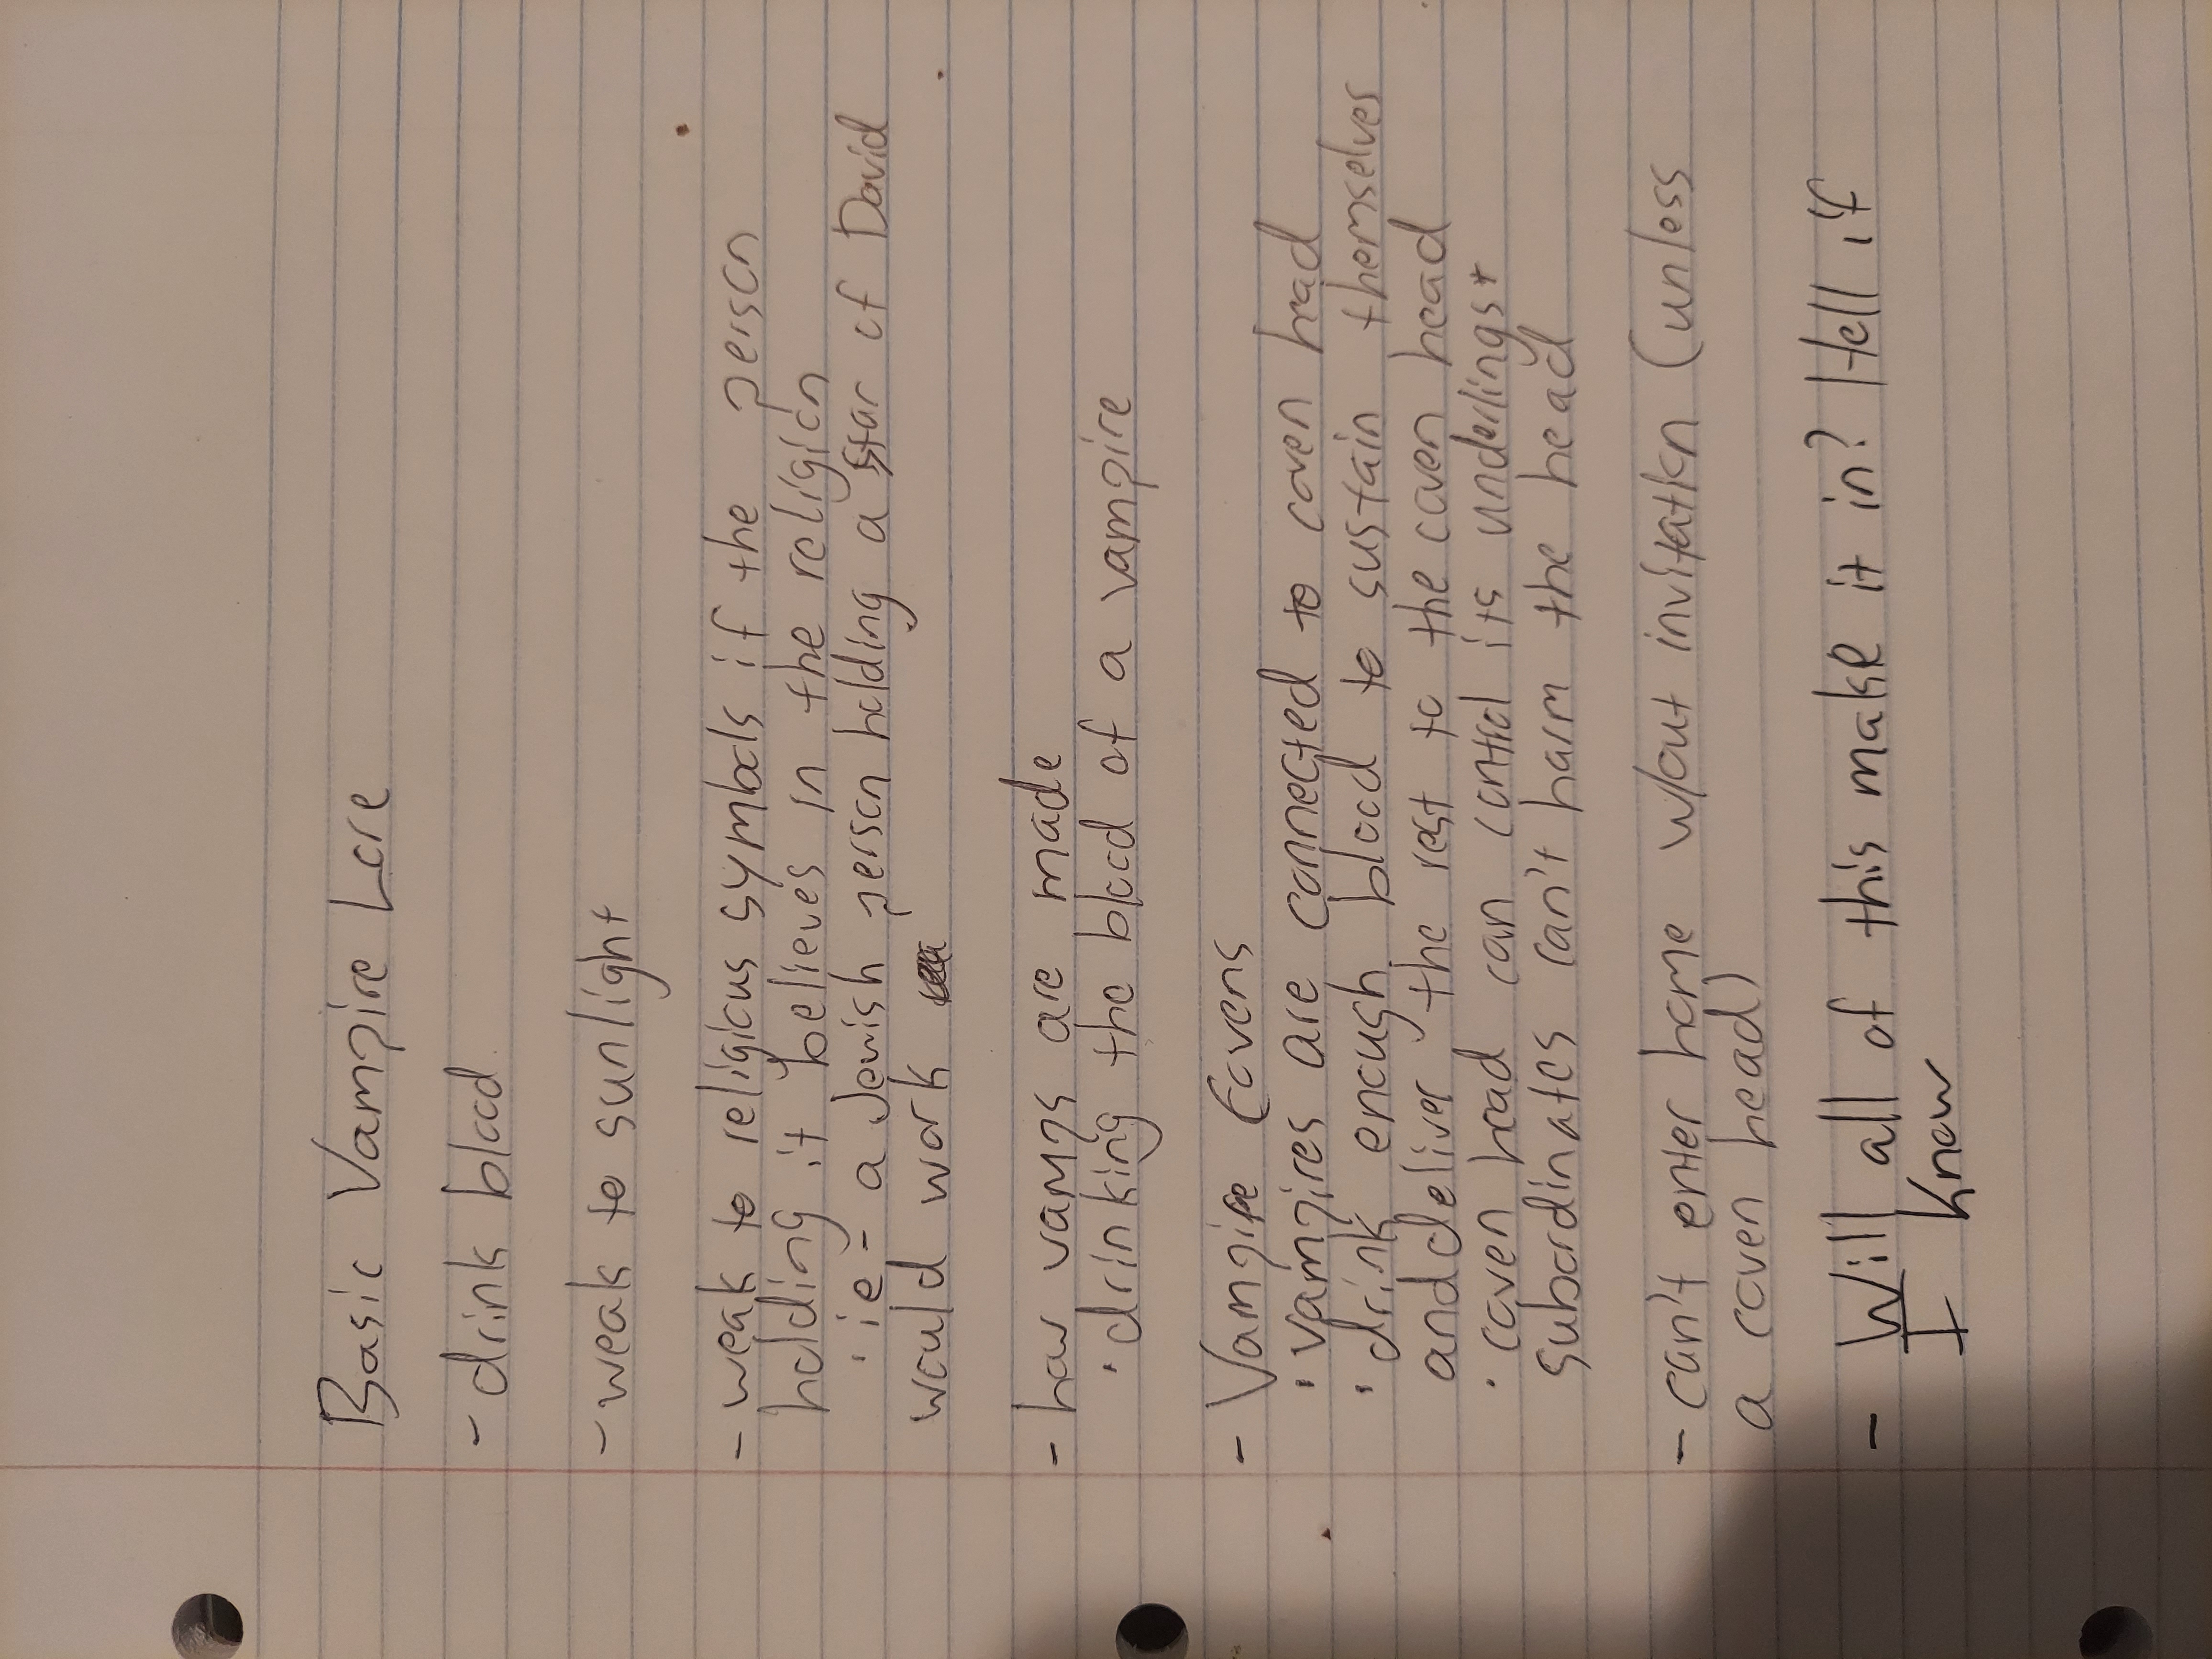 Basic Vampire Lore
- drink blood
- weak to sunlight
- weak to religious symbols if the person
holding it believes in the religion
· ie - a Jewish person holding a Star of David
would work
- how vamps are made
· drinking the blood of a vampire
- Vampire Covens
· vampires are connected to coven head
· drink enough blood to sustain themselves
and deliver the rest to the coven head
· coven head can control its underlings +
subordinates can't harm the head
- can't enter home w/out invitation (unless
a coven head)
- Will all of this make it in? Hell if
I know